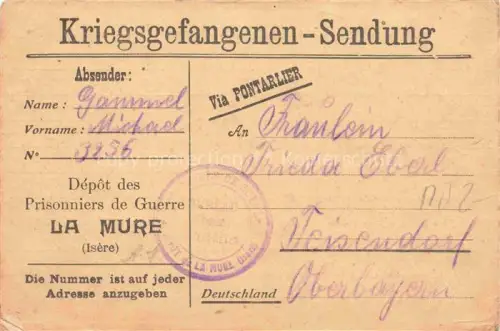 Kriegsgefangenen-Sendung
Absender:
Name: Gammel
Vorname: Michael
N° 3256
Dépôt des
Prisonniers de Guerre
LA MURE
(Isère)
Die Nummer ist auf jeder
Adresse anzugeben
Via PONTARLIER
An Fräulein
Frieda Eberl
Teisendorf
Deutschland Oberbayern
DE LA MURE